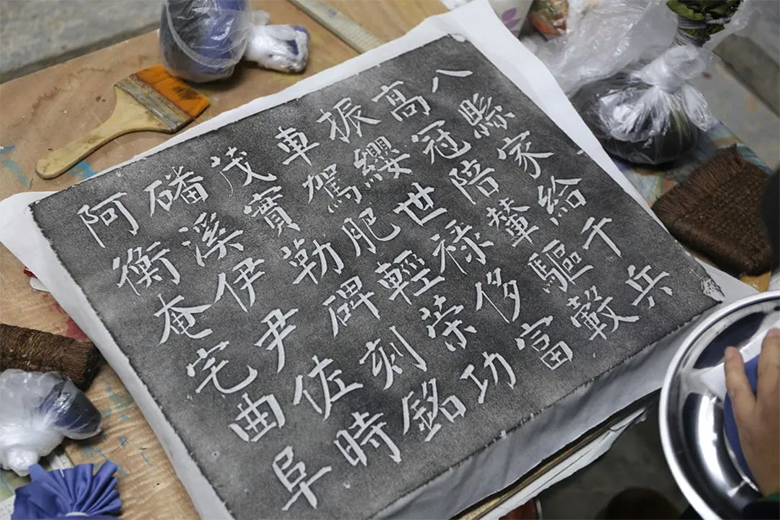 八縣家給千兵
高冠陪輦驅轂
振纓世祿侈富
車駕肥輕策功
茂實勒碑刻銘
磻溪伊尹佐時
阿衡奄宅曲阜